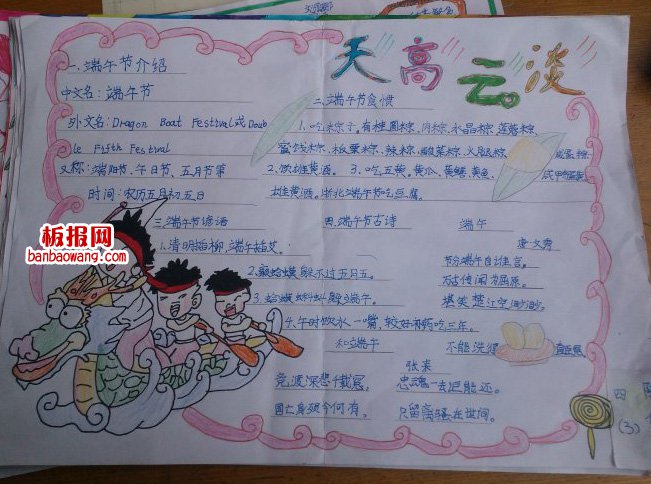 天高云淡
一、端午节介绍
中文名：端午节
外文名：Dragon Boat Festival或Doub
le Fifth Festival
又称：端阳节、午日节、五月节等
时间：农历五月初五日
二、端午节食惯
1、吃粽子，有桂圆粽、肉粽、水晶粽、莲蓉粽、
蜜饯粽、板栗粽、辣粽、酸菜粽、火腿粽、
咸蛋粽
2、饮雄黄酒。3、吃五黄。黄瓜、黄鳝、黄鱼、
咸鸭蛋黄
雄黄酒。浙北端午节吃豆腐。
三、端午节谚语
1、清明插柳，端午插艾。
2、癞蛤蟆躲不过五月五。
3、蛤蟆蝌蚪躲端午。
4、午时饮水一嘴，较好补药吃三年。
四、端午节古诗
端午
唐·文秀
节分端午自谁言，
万古传闻为屈原。
堪笑楚江空渺渺，
不能洗得直臣冤。
和端午
张耒
竞渡深悲千载冤，
忠魂一去讵能还。
国亡身殒今何有，
只留离骚在世间。
板报网
banbaowang.com
四
（3）